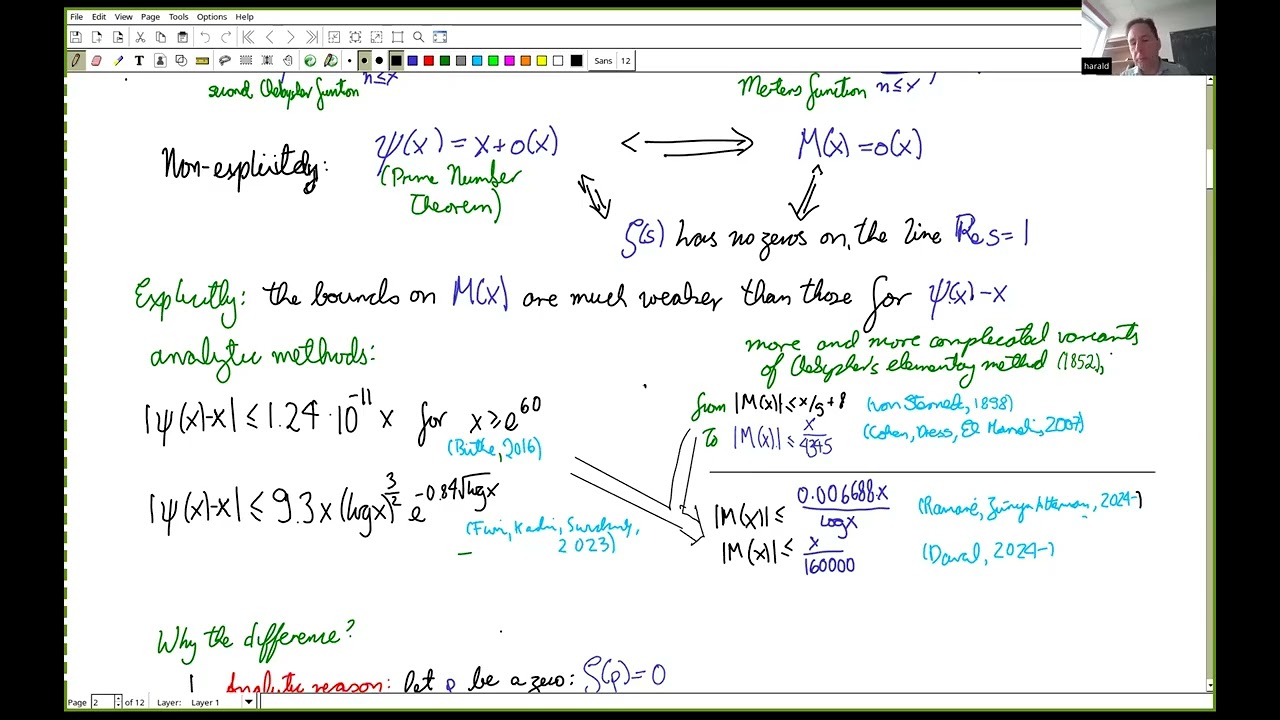 File Edit View Page Tools Options Help
Sans 12
harald
second Chebyshev function n≤x
Mertens function n≤x
Non-explicitly: ψ(x) = x+o(x) ⟺ M(x) = o(x)
(Prime Number
Theorem)
ζ(s) has no zeros on the line Re s = 1
Explicitly: the bounds on M(x) are much weaker than those for ψ(x)-x
analytic methods:
more and more complicated variants
of Chebyshev's elementary method (1852),
|ψ(x)-x| ≤ 1.24 · 10^-11 x for x ≥ e^60
(Büthe, 2016)
from |M(x)| ≤ x/9 + 8 (von Sterneck, 1898)
To |M(x)| ≤ x/4345 (Cohen, Dress, El Marraki, 2007)
|ψ(x)-x| ≤ 9.3 x (log x)^3/2 e^-0.84√log x
(Fiori, Kadiri, Swidinsky,
2023)
|M(x)| ≤ 0.006688x/log x (Ramaré, Zúñiga Alterman, 2024-)
|M(x)| ≤ x/160000 (Daval, 2024-)
Why the difference?
Analytic reason: let ρ be a zero: ζ(ρ) = 0
Page 2 of 12 Layer: Layer 1